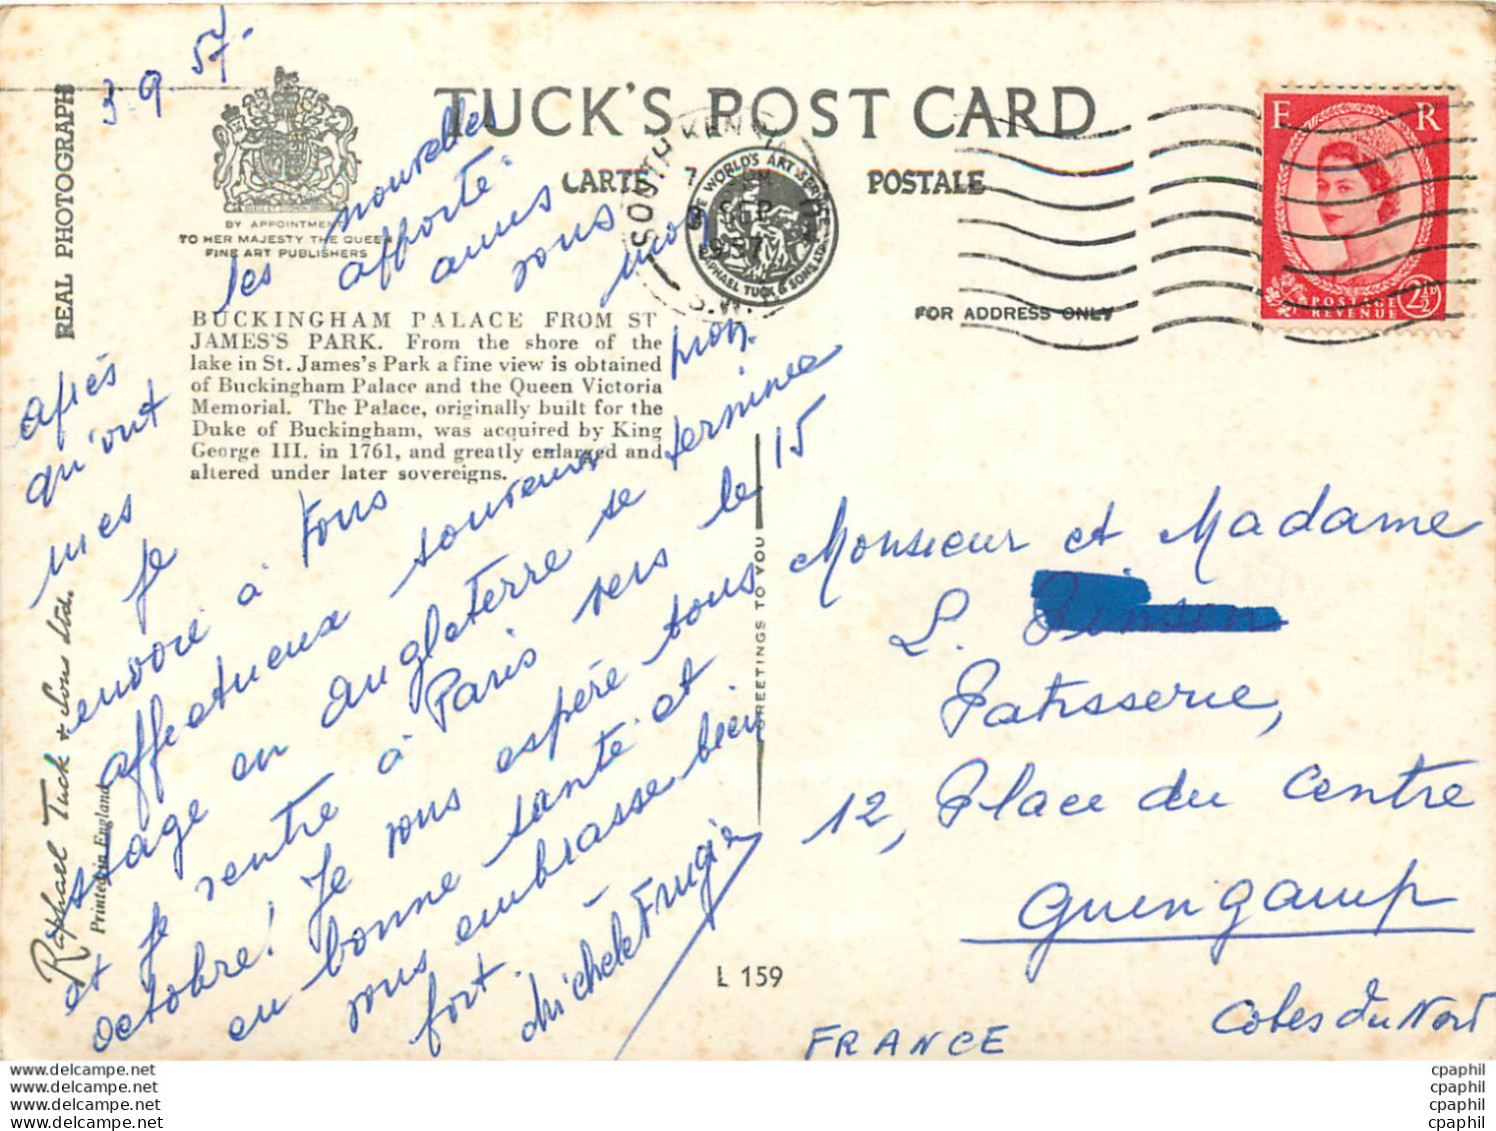 3.9.57.
REAL PHOTOGRAPH
TUCK'S POST CARD
CARTE POSTALE
BY APPOINTMENT
TO HER MAJESTY THE QUEEN
FINE ART PUBLISHERS
SOUTH KEN
7
SEP
1957
S.W.
THE WORLD'S ART SERVICE
RAPHAEL TUCK & SONS LTD.
E R
POSTAGE
REVENUE
2½D
FOR ADDRESS ONLY
BUCKINGHAM PALACE FROM ST
JAMES'S PARK. From the shore of the
lake in St. James's Park a fine view is obtained
of Buckingham Palace and the Queen Victoria
Memorial. The Palace, originally built for the
Duke of Buckingham, was acquired by King
George III. in 1761, and greatly enlarged and
altered under later sovereigns.
après les nouvelles
qu'ont apporté
mes amis
je vous
envoie à tous mon
affectueux souvenir mon
stage en angleterre se termine
et je rentre à Paris vers le 15
octobre! Je vous espère tous
en bonne santé et
vous embrasse bien
fort -
Michele Frugie
Raphael Tuck & Sons Ltd.
Printed in England
GREETINGS TO YOU
GREETINGS TO YOU
L 159
Monsieur et Madame
L.
Patisserie,
12, Place du Centre
Guingamp
Cotes du Nord
FRANCE
www.delcampe.net
www.delcampe.net
www.delcampe.net
www.delcampe.net
cpaphil
cpaphil
cpaphil
cpaphil